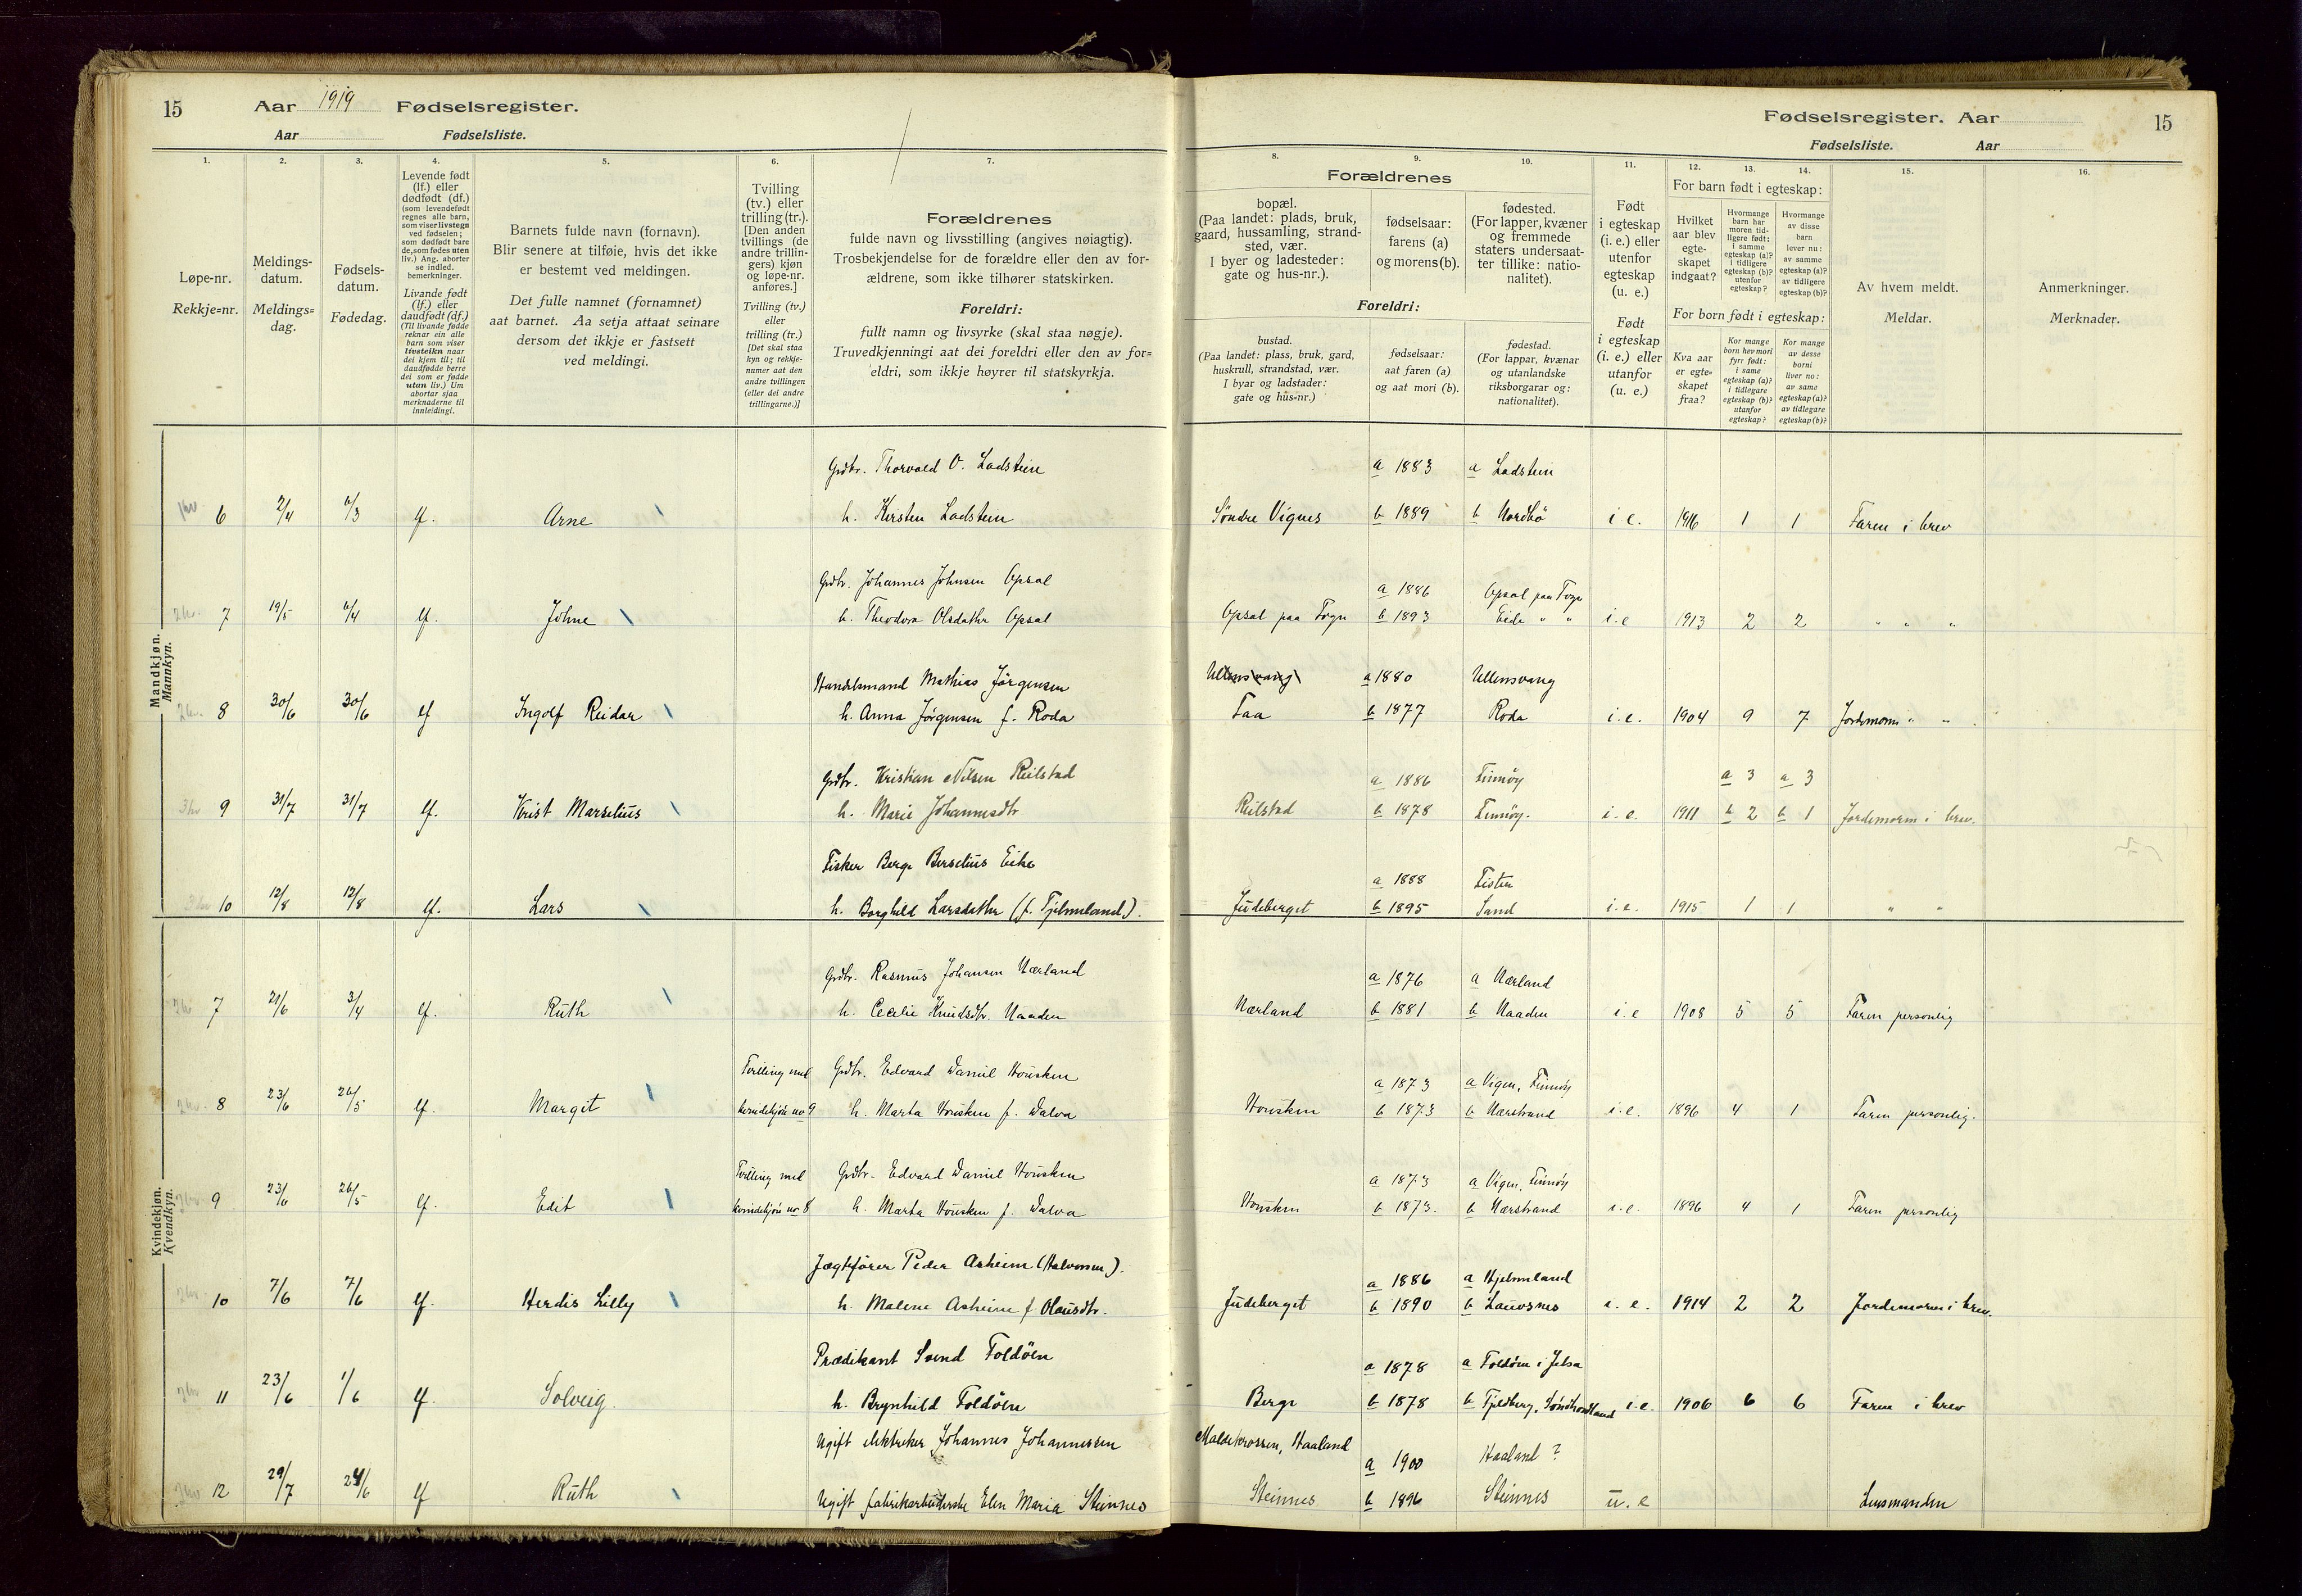 15 Aar 1919 Fødselsregister.
Aar Fødselsliste.
Fødselsregister. Aar 15
Fødselsliste. Aar
1. 2. 3. 4. 5. 6. 7. 8. 9. 10. 11. 12. 13. 14. 15. 16.
Løpe-nr.
Rekkje=nr.
Meldings-
datum.
Meldings=
dag.
Fødsels-
datum.
Fødedag.
Levende født
(lf.) eller
dødfødt (df.)
(som levendefødt
regnes alle barn,
som viser livstegn
ved fødselen;
som dødfødt bare
de, som fødes uten
liv.) Ang. aborter
se indled.
bemerkninger.
Livande født
(lf.) eller
daudfødt (df.)
(Til livande fødde
reknar ein alle
barn som viser
livsteikn naar
dei kjem til; til
daudfødde berre
dei som er fødde
utan liv.) Um
abortar sjaa
merknaderne til
innleidingi.
Barnets fulde navn (fornavn).
Blir senere at tilføie, hvis det ikke
er bestemt ved meldingen.
Det fulle namnet (fornamnet)
aat barnet. Aa setja attaat seinare
dersom det ikkje er fastsett
ved meldingi.
Tvilling
(tv.) eller
trilling (tr.).
[Den anden
tvillings (de
andre trillin-
gers) kjøn
og løpe-nr.
anføres.]
Tvilling (tv.)
eller
trilling (tr.)
[Det skal staa
kyn og rekkje-
numer aat den
andre tvillingen
(eller dei andre
trillingarne.)]
Forældrenes
fulde navn og livsstilling (angives nøiagtig).
Trosbekjendelse for de forældre eller den av for-
ældrene, som ikke tilhører statskirken.
Foreldri:
fullt namn og livsyrke (skal staa nøgje).
Truvedkjenningi aat dei foreldri eller den av for=
eldri, som ikkje høyrer til statskyrkja.
Forældrenes
bopæl.
(Paa landet: plads, bruk,
gaard, hussamling, strand-
sted, vær.
I byer og ladesteder:
gate og hus-nr.).
fødselsaar:
farens (a)
og morens (b).
fødested.
(For lapper, kvæner
og fremmede
staters undersaat-
ter tillike: natio-
nalitet).
Foreldri:
bustad.
(Paa landet: plass, bruk, gard,
huskrull, strandstad, vær.
I byar og ladstader:
gate og hus=nr.)
fødselsaar:
aat faren (a)
og aat mori (b).
fødestad.
(For lappar, kvænar
og utanlandske
riksborgarar og:
nationalitet).
Født
i egteskap
(i. e.) eller
utenfor
egteskap
(u. e.)
Født
i egteskap
(i. e.) eller
utanfor
(u. e.)
For barn født i egteskap:
Hvilket
aar blev
egte-
skapet
indgaat?
Hvormange
barn har
moren tid-
ligere født:
i samme
egteskap (a)?
i tidligere
egteskap (b)?
utenfor
egteskap?
Hvormange
av disse
barn
lever nu:
av samme
egteskap (a)?
av tidligere
egteskap (b)?
For born født i egteskap:
Kva aar
er egte=
skapet
fraa?
Kor mange
born hev mori
fyrr født:
i same
egteskap (a)?
i tidlegare
egteskap (b)?
utanfor
egteskap?
Kor mange
av desse
borni
liver no:
av same
egteskap (a)?
av tidlegare
egteskap (b)?
Av hvem meldt.
Meldar.
Anmerkninger.
Merknader.
Mandkjøn.
Mannkyn.
Grdbr. Thorvald O. Ladstein a 1883 a Ladstein
6 2/4 6/3 lf. Arne h. Kirsten Ladstein Søndre Vignes b 1889 b Nordbö i e. 1916 1 1 Faren i brev
Grdbr. Johannes Johnsen Opsal a 1886 Opsal paa Fogn
7 19/5 6/4 lf. Johne h. Theodora Olsdatter Opsal Opsal paa Fogn b 1893 Eide " " i. e 1913 2 2 " " "
Handelsmand Mathias Jörgensen Ullensvang a 1880 Ullensvang
8 30/6 30/6 lf Ingolf Reidar h. Anna Jörgensen f. Roda Faa b 1877 Roda i. e. 1904 9 7 Jordmoren " "
Grdbr. Kristian Nilsen Reilstad a 1886 Finnöy a 3 a 3
9 31/7 31/7 lf. Krist Marselius h. Marie Johannesdtr Reilstad b 1878 Finnöy. i. e. 1911 b 2 b 1 Jordemoren i brev.
Fisker Berge Berselius Eike a 1888 Fister
10 12/8 12/8 lf. Lars h. Borghild Larsdatter (f. Fjelmland). Judeberget b 1895 Sand i. e. 1915 1 1 " "
Kvindekjøn.
Kvendkyn.
Grdbr. Rasmus Johansen Nærland a 1876 a Nærland
7 21/6 3/4 lf. Ruth h. Cecilie Knudsdtr. Naaden Nærland b 1881 b Naaden i. e 1908 5 5 Faren personlig
Tvilling med Grdbr. Edvard Daniel Housken a 1873 a Vigen, Finnöy
8 23/6 26/5 lf. Margit kvindekjön no 9 h. Marta Housken f. Dalva Housken b 1873 b Nærstrand i. e. 1896 4 1 Faren personlig.
Tvilling med Grdbr. Edvard Daniel Housken a 1873 a Vigen, Finnöy
9 23/6 26/5 lf. Edit kvindekjön no 8 h. Marta Housken f. Dalva Housken b 1873. b Nærstrand i. e. 1896 4 1 Faren personlig
Jægtefører Peder Asheim (Halvorsen). a 1886 a Hjelmeland
10 7/6 7/6 lf. Herdis Lilly h. Malene Asheim f Olausdtr. Judeberget b 1890 b Lauvsnes i. e. 1914 2 2 Jordemoren i brev.
Prædikant Svend Foldöen a 1878 a Foldöen i Jelsa
11 23/6 1/6 lf. Solveig. h. Brynhild Foldöen Berge b 1878 b Fjeldberg, Søndhordland i. e. 1906 6 6 Faren i brev
Ugift elektriker Johannes Johannessen Maldekrossen, Haaland a 1900 Haaland ?
12 29/7 24/6 lf Ruth Ugift fabrikarbeiderske Elen Maria Steinnes Steinnes b 1896 Steinnes u. e Lensmanden